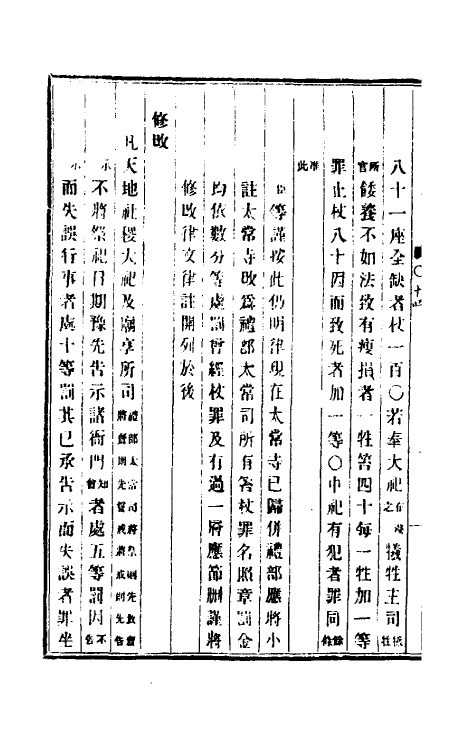 八十一座全缺者杖一百○若奉大祀犧牲主司
官餧養不如法致有瘦損者一牲笞四十每一牲加一等
罪止杖八十因而致死者加一等○中祀有犯者罪同
准此
臣等謹按此仍明律現在太常寺已歸併禮部應將小
註太常寺改爲禮部太常司所有笞杖罪名照章罰金
均依數分等處罰曾經杖罪及有過一層應節刪謹將
修改律文律註開列於後
修改
凡天地社稷大祀及廟享所司禮部太常司將祭則先致齋將齋則先誓戒將戒則先告示
不將祭祀日期豫先告示諸衙門知會者處五等罰因不告示
而失誤行事者處十等罰其已承告示而失誤者罪坐